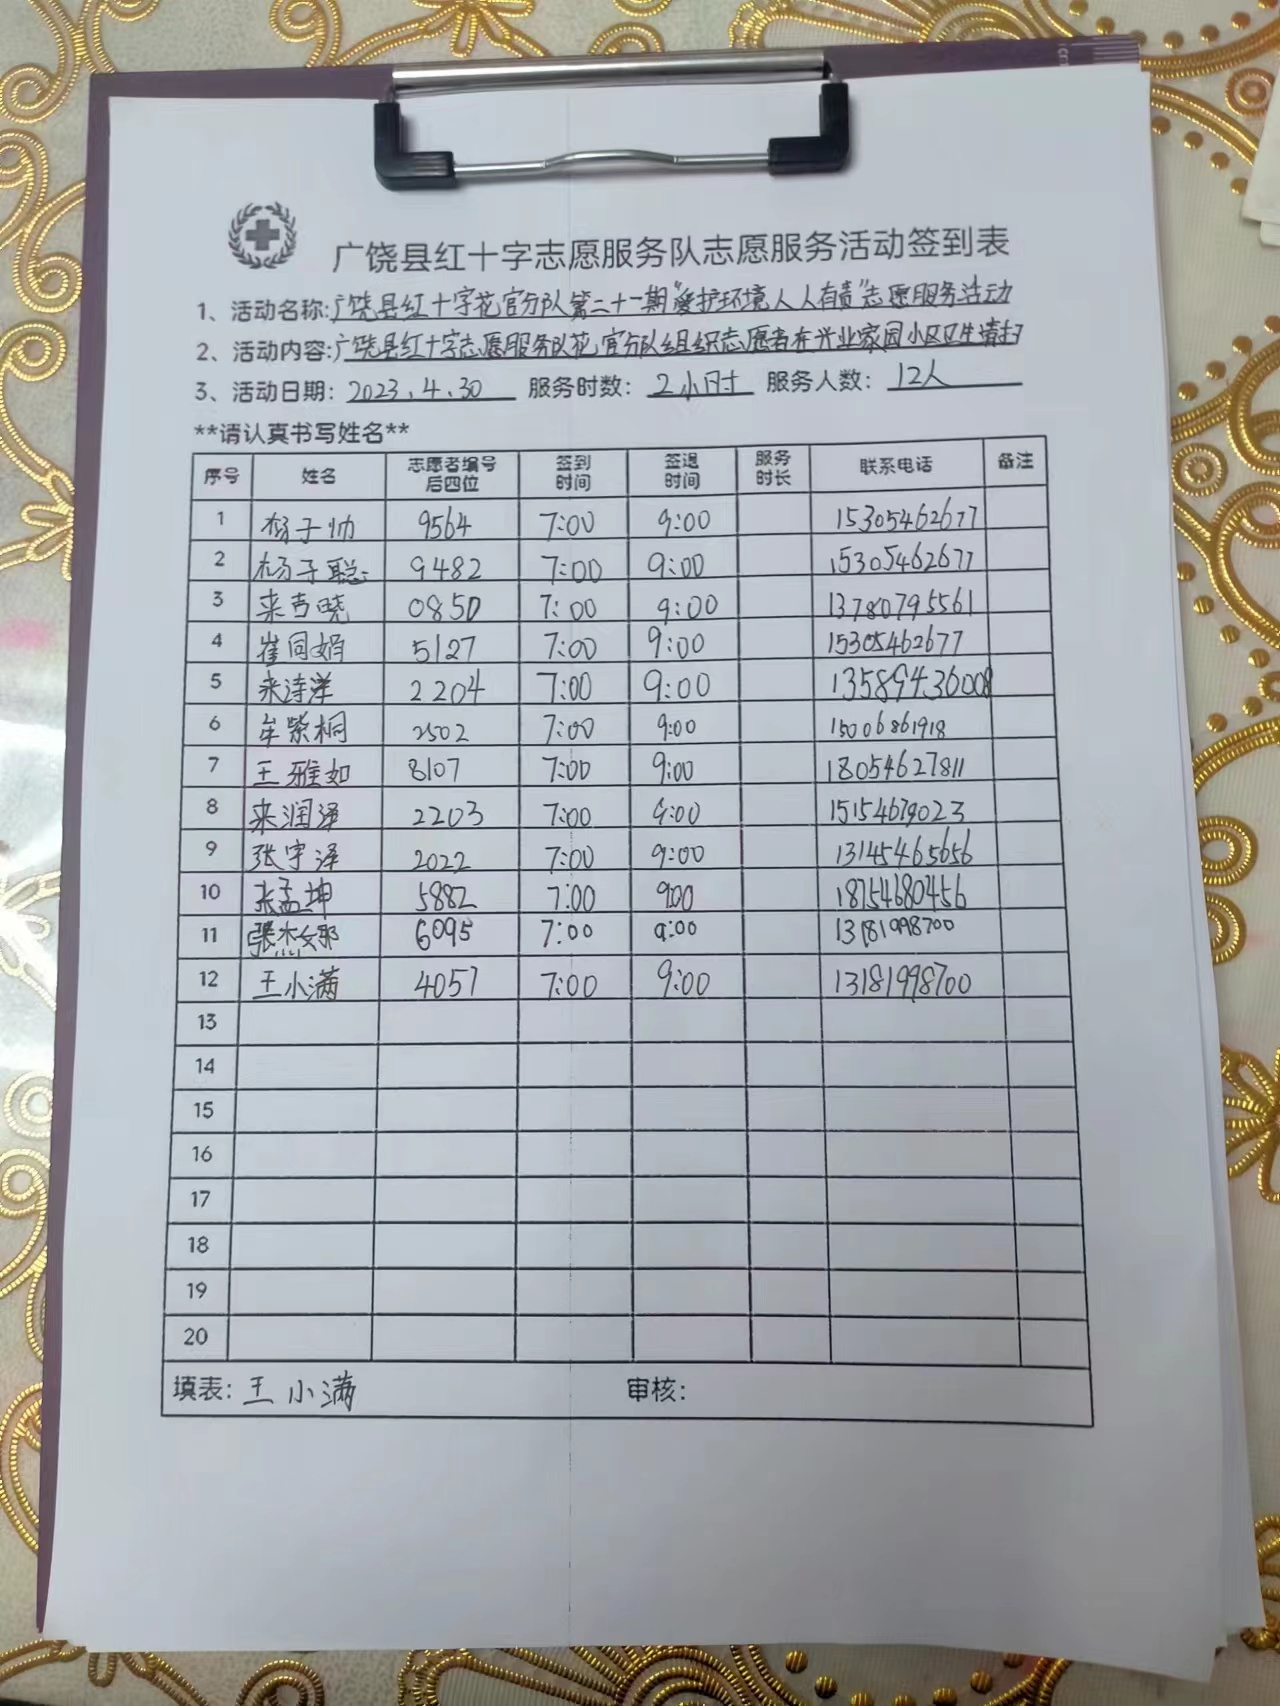 广饶县红十字志愿服务队志愿服务活动签到表
1、活动名称:广饶县红十字花官分队第二十一期"爱护环境人人有责"志愿服务活动
2、活动内容:广饶县红十字志愿服务队花官分队组织志愿者在兴业家园小区卫生清扫
3、活动日期: 2023.4.30 服务时数: 2小时 服务人数: 12人
**请认真书写姓名**
序号 姓名 志愿者编号后四位 签到时间 签退时间 服务时长 联系电话 备注
1 杨子帅 9564 7:00 9:00 15305462677
2 杨子聪 9482 7:00 9:00 15305462677
3 来吉晓 0850 7:00 9:00 13780795561
4 崔同娟 5127 7:00 9:00 15305462677
5 来诗洋 2204 7:00 9:00 13589436008
6 牟紫桐 2502 7:00 9:00 15006861918
7 王雅如 8107 7:00 9:00 18054627811
8 来润泽 2203 7:00 9:00 15154679023
9 张宇泽 2022 7:00 9:00 13145465656
10 张孟坤 5882 7:00 9:00 18754680456
11 张杰 6095 7:00 9:00 13181998700
12 王小满 4057 7:00 9:00 13181998700
13
14
15
16
17
18
19
20
填表: 王小满 审核: